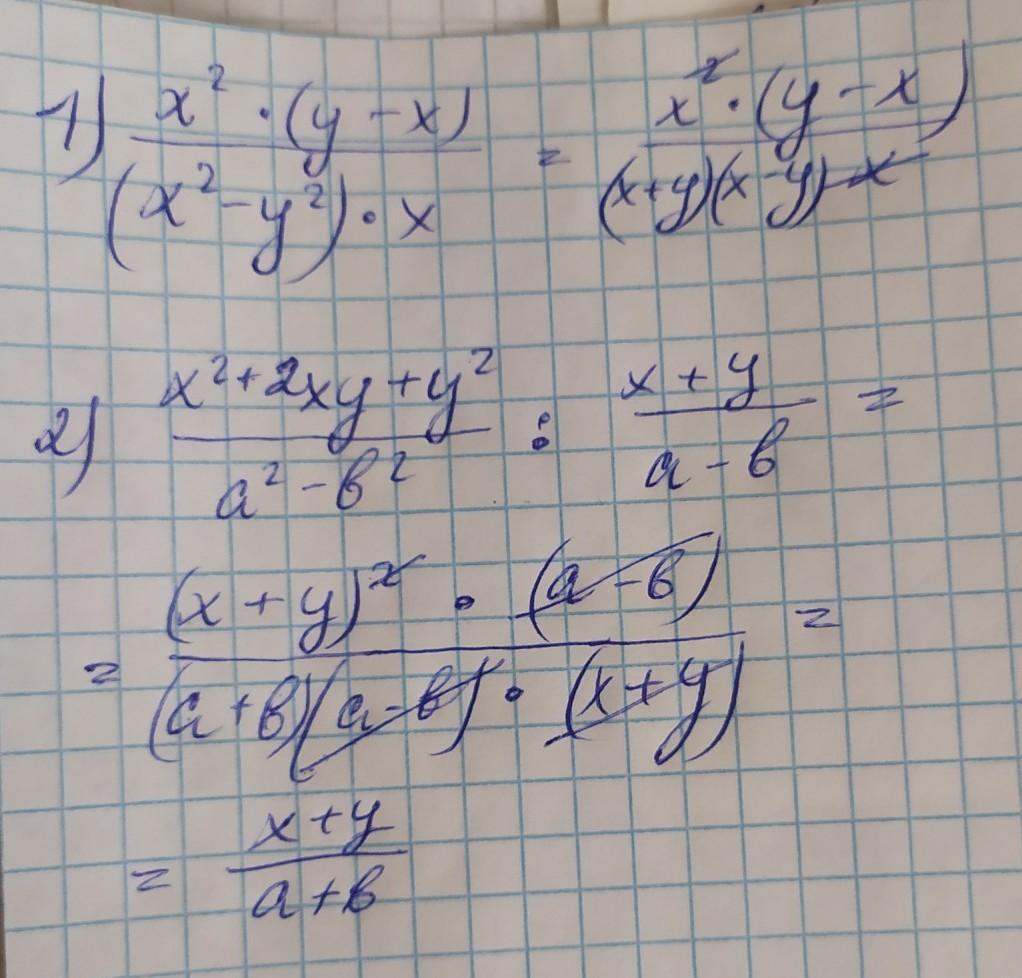 1) x² · (y - x) / (x² - y²) · x = x² · (y - x) / (x+y)(x-y) · x
2) x² + 2xy + y² / a² - в² : x + y / a - в =
= (x + y)² · (a - в) / (a + в)(a - в) · (x + y) =
= x + y / a + в